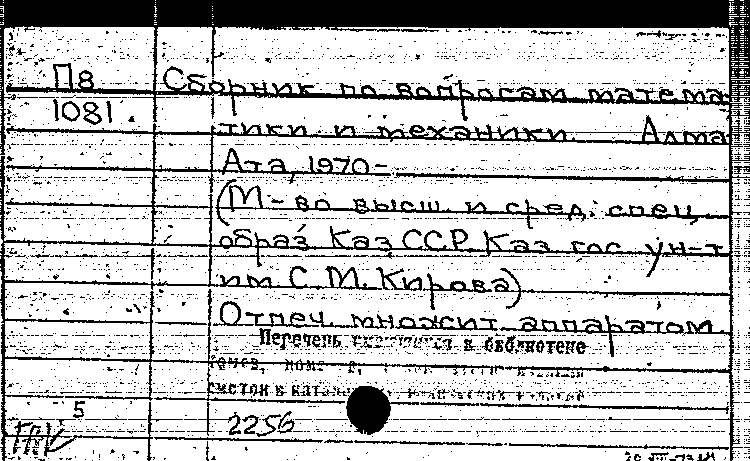 П8 Сборник по вопросам матема
1081. тики и механики Алма
Ата, 1970-
(М-во высш. и сред. спец.
образ Каз ССР Каз гос. ун-т
им С. М. Кирова)
Отпеч. множит аппаратом
Перечень в библиотеке
томов,
систои в
5 2256